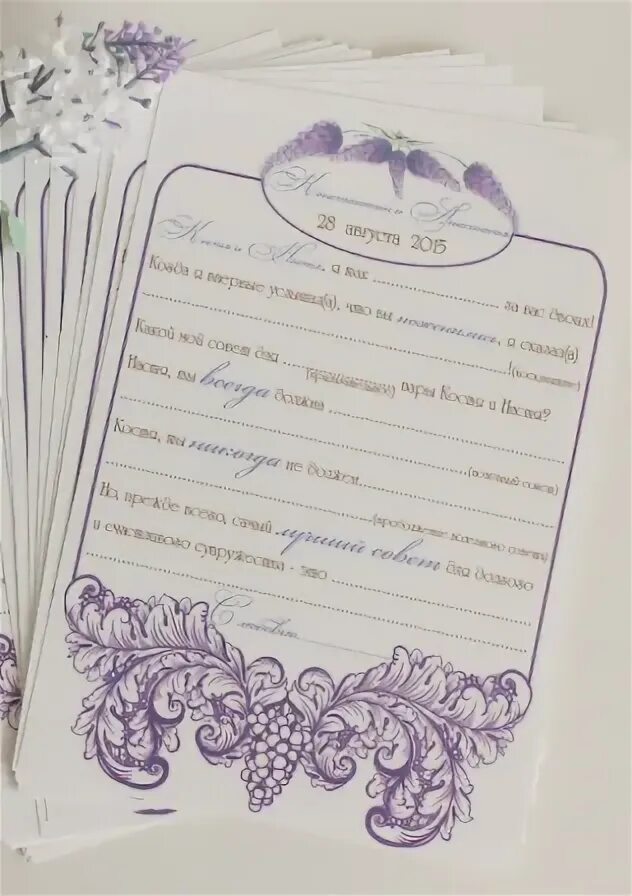 Константин и Анастасия
28 августа 2015
Костя и Настя, я так ........ за вас двоих!
Когда я впервые услышал(а), что вы поженились, я сказал(а)
........!(восклицание)
Какой мой совет для ........ пары Костя и Настя?
(прилагательное)
Настя, ты всегда должна ........
........(полезный совет)
Костя, ты никогда не должен ........
........(продолжение полезного совета)
Но, прежде всего, самый лучший совет для долгого
и счастливого супружества - это ........
С любовью